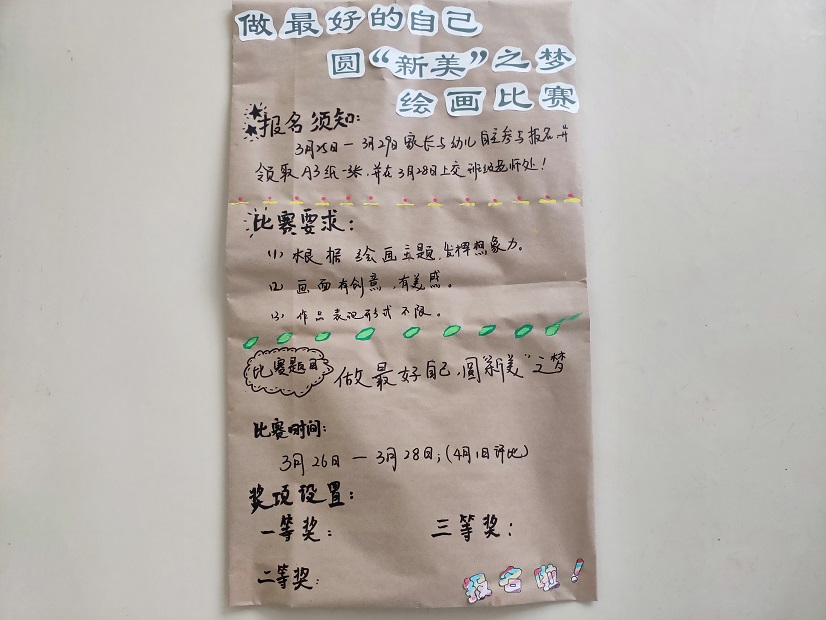 做最好的自己
圆“新美”之梦
绘画比赛
报名须知:
3月25日一3月29日家长与幼儿自主参与报名并
领取A3纸一张,并在3月28日上交班级老师处!
比赛要求:
(1) 根据绘画主题,发挥想象力。
(2) 画面有创意,有美感。
(3) 作品表现形式不限。
比赛题目
做最好自己,圆“新美”之梦
比赛时间:
3月26日—3月28日;(4月1日评比)
奖项设置:
一等奖: 三等奖:
二等奖:
报名啦!